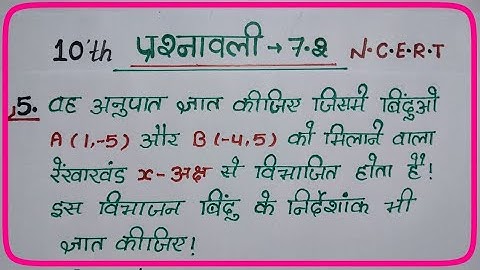 10'th प्रश्नावली → 7.2 N.C.E.R.T
5. वह अनुपात ज्ञात कीजिए जिसमे बिंदुओ
A (1,-5) और B (-4,5) को मिलाने वाला
रेखाखंड x-अक्ष से विभाजित होता है!
इस विभाजन बिंदु के निर्देशांक भी
ज्ञात कीजिए!